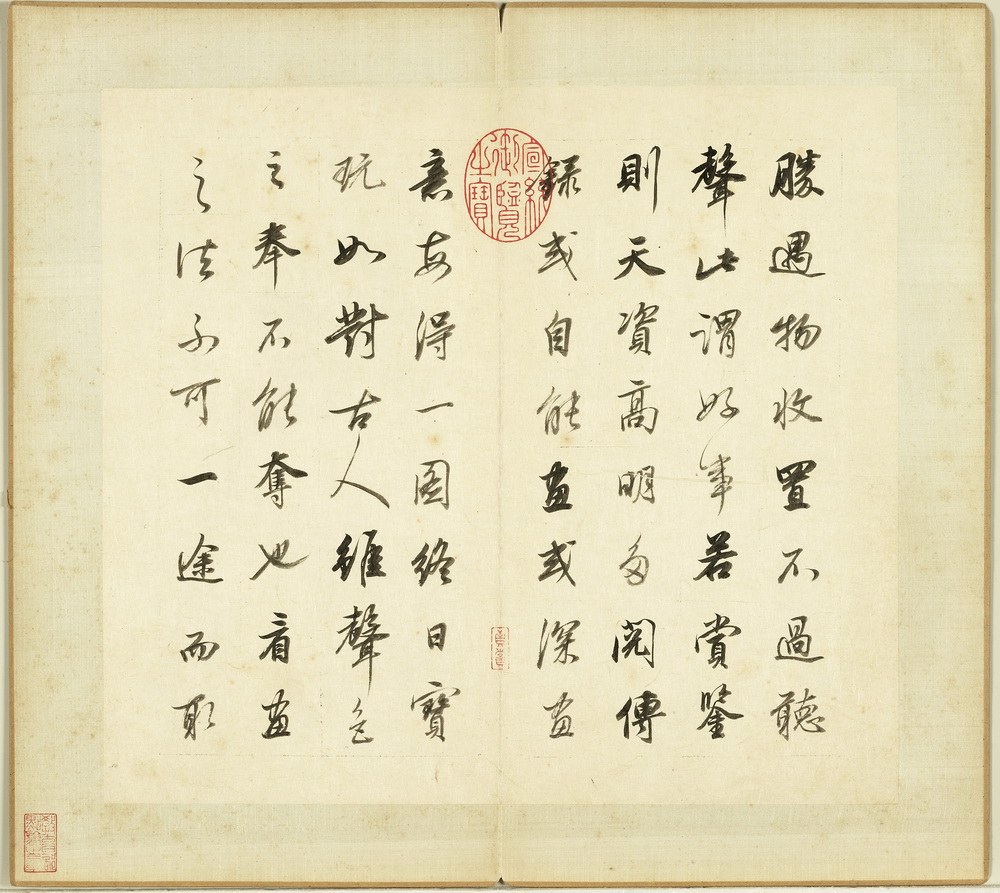 勝遇物收置不過聽
聲此謂好事若賞鑒
則天資高明多閱傳
錄或自能畫或深畫
意每得一圖終日寶
玩如對古人雖聲色
之奉不能奪也看畫
之法不可一途而取
宣統御覽之寶